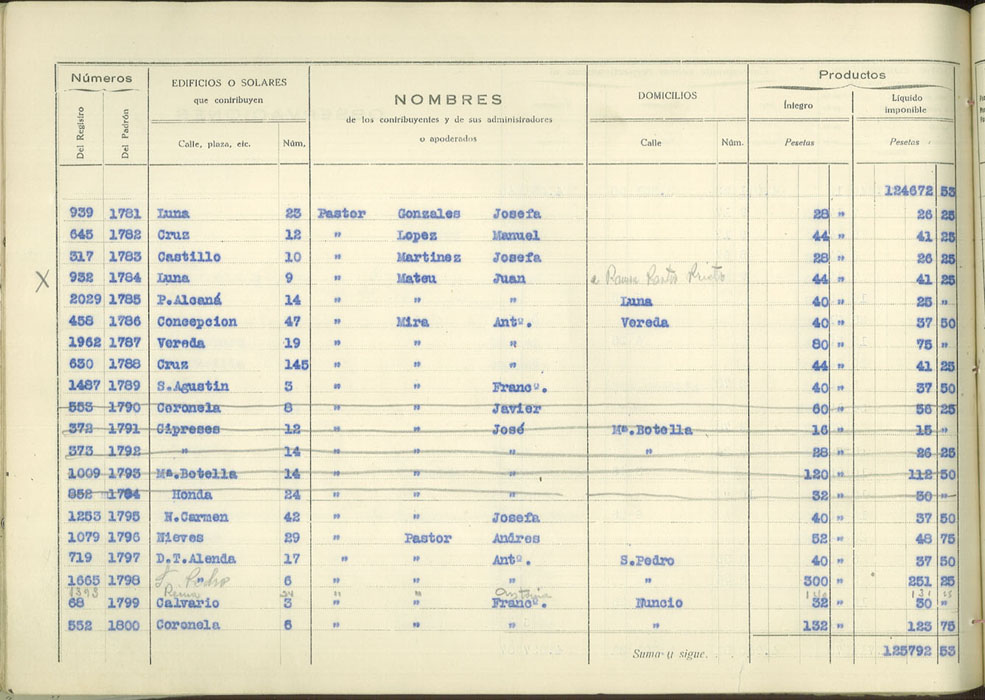 Números
EDIFICIOS O SOLARES
que contribuyen
NOMBRES
de los contribuyentes y de sus administradores
o apoderados
DOMICILIOS
Productos
Del Registro
Del Padrón
Calle, plaza, etc.
Núm.
Calle
Núm.
Íntegro
Pesetas
Líquido
imponible
Pesetas
124672 53
939 1781 Luna 23 Pastor Gonzales Josefa 28 " 26 25
645 1782 Cruz 12 " Lopez Manuel 44 " 41 25
317 1783 Castillo 10 " Martinez Josefa 28 " 26 25
X 932 1784 Luna 9 " Mateu Juan 44 " 41 25
2029 1785 P.Alcaná 14 " " " Luna 40 " 25 "
458 1786 Concepcion 47 " Mira Antº. Vereda 40 " 37 50
1962 1787 Vereda 19 " " " 80 " 75 "
630 1788 Cruz 145 " " " 44 " 41 25
1487 1789 S.Agustin 3 " " Francº. 40 " 37 50
553 1790 Coronela 8 " " Javier 60 " 56 25
372 1791 Cipreses 12 " " José Mª.Botella 16 " 15 "
373 1792 " 14 " " " " 28 " 26 25
1009 1793 Mª.Botella 14 " " " 120 " 112 50
852 1794 Honda 24 " " " 32 " 30 "
1253 1795 N.Carmen 42 " " Josefa 40 " 37 50
1079 1796 Nieves 29 " Pastor Andres 52 " 48 75
719 1797 D.T.Alenda 17 " " Antº. S.Pedro 40 " 37 50
1665 1798 " S. Pedro 6 " " " " 300 " 251 25
1393 " " Antonia
68 1799 Calvario 3 " " Francº. Nuncio 32 " 30 "
552 1800 Coronela 6 " " " " 132 " 123 75
Suma y sigue. 125792 53